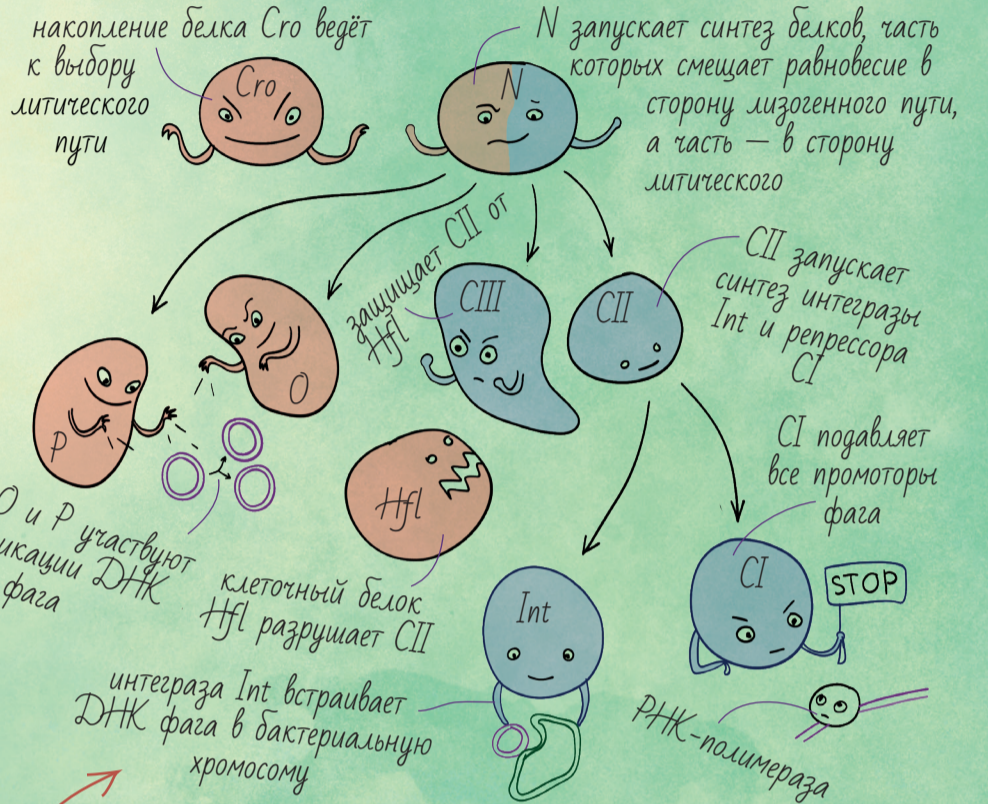 накопление белка Cro ведёт
к выбору
литического
пути
Cro
N запускает синтез белков, часть
которых смещает равновесие в
сторону лизогенного пути,
а часть — в сторону
литического
N
защищает CII от
Hfl
CIII
CII
CII запускает
синтез интегразы
Int и репрессора
CI
P
O
O и P участвуют
ДНК
фага
Hfl
клеточный белок
Hfl разрушает CII
CI подавляет
все промоторы
фага
CI
STOP
Int
интеграза Int встраивает
ДНК фага в бактериальную
хромосому
РНК-полимераза